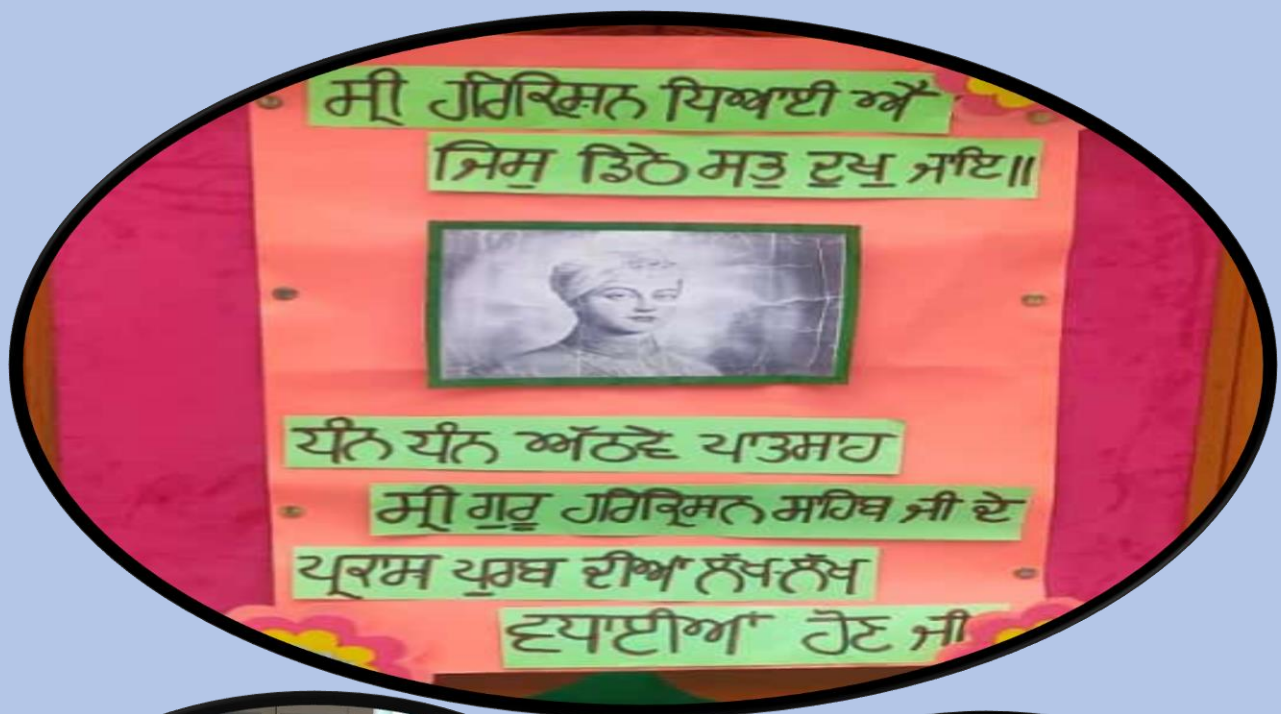 ਸ੍ਰੀ ਹਰਿਕ੍ਰਿਸ਼ਨ ਧਿਆਈ ਐ
ਜਿਸੁ ਡਿਠੇ ਸਤੁ ਦੁਖੁ ਜਾਇ॥
ਧੰਨ ਧੰਨ ਅੱਠਵੇ ਪਾਤਸਾਹ
ਸ੍ਰੀ ਗੁਰੂ ਹਰਿਕ੍ਰਿਸਨ ਸਾਹਿਬ ਜੀ ਦੇ
ਪ੍ਰਕਾਸ਼ ਪੁਰਬ ਦੀਆਂ ਲੱਖ-ਲੱਖ
ਵਧਾਈਆਂ ਹੋਣ ਜੀ